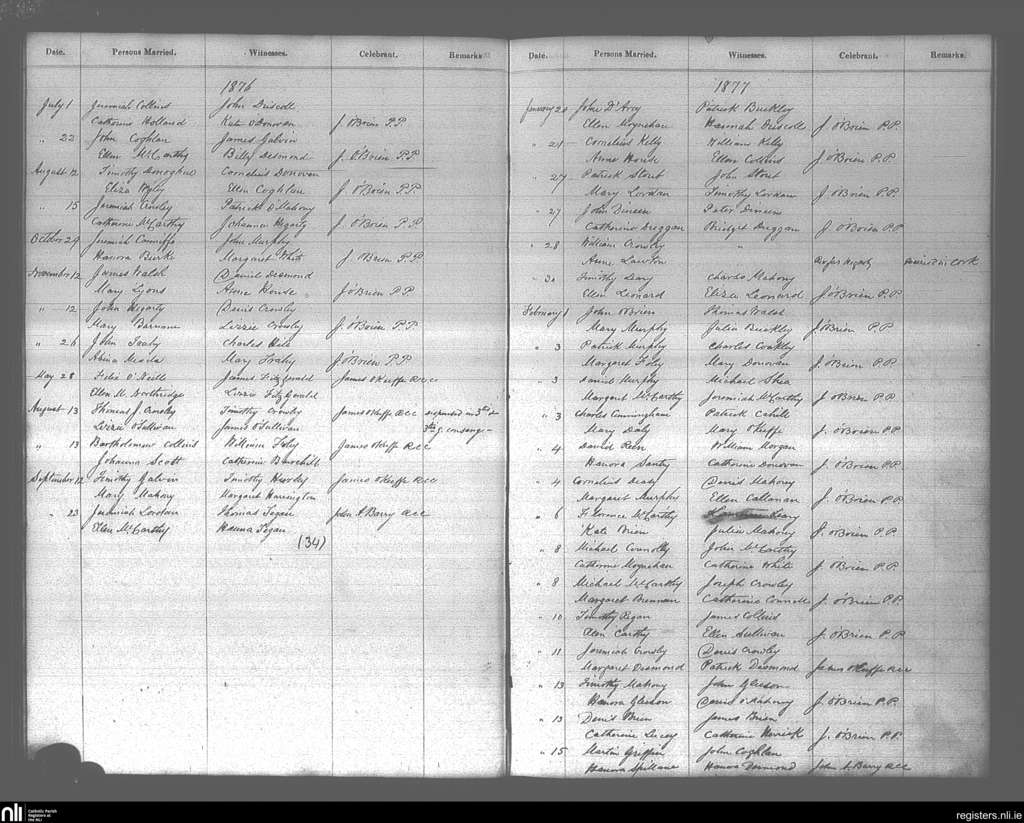 Date. Persons Married. Witnesses. Celebrant. Remarks
1876
July 1 Jeremiah Collins John Driscoll
Catherine Holland Kate O'Donovan J O'Brien P.P.
" 22 John Coghlan James Galvin
Ellen McCarthy Billy Desmond J. O'Brien P.P.
August 12 Timothy Donoghue Cornelius Donovan
Eliza Ellen Coghlan J. O'Brien P.P.
" 15 Jeremiah Crowley Patrick O'Mahony
Catherine McCarthy Johanna Hegarty J. O'Brien P.P.
October 29 Jeremiah John Murphy
Hanora Burke Margaret White J. O'Brien P.P.
November 12 James Walsh Daniel Desmond
Mary Lyons Anne House J O'Brien P.P.
" 12 John Hegarty Denis Crowley
Mary Barnane Lizzie Crowley J. O'Brien P.P.
" 26 John Charles
Abina Mary J O'Brien P.P.
May 28 Felix O'Neill James Fitzgerald James O'Keeffe RCC
Ellen M. Northridge Lizzie FitzGerald
August 13 Thomas J. Crowley Timothy Crowley James O'Keeffe RCC
Lizzie O'Sullivan James O'Sullivan
" 13 Bartholomew Collins William Foley James O'Keeffe RCC
Johanna Scott Catherine
September 12 Timothy Galvin Timothy Hurley James O'Keeffe RCC
Mary Mahony Margaret Harrington
" 23 Jeremiah Lordan Thomas Barry RCC
Ellen McCarthy Hanna
(34)
Date. Persons Married. Witnesses. Celebrant. Remarks.
1877
January 20 John D'Arcy Patrick Buckley
Ellen Moynehan Hannah Driscoll J O'Brien P.P.
" 21 Cornelius Kelly William Kelly
Anne House Ellen Collins J O'Brien P.P.
" 27 Patrick Stout John Stout
Mary Lordan Timothy Lordan J. O'Brien P.P.
" 27 John Dineen Peter Dineen
Catherine Duggan Bridget Duggan J O'Brien P.P.
" 28 William Crowley "
Anne Lawton Cork
" 30 Timothy Leary Charles Mahony
Ellen Leonard Eliza Leonard J O'Brien P.P.
February 1 John O'Brien Thomas Walsh
Mary Murphy Julia Buckley J O'Brien P.P.
" 3 Patrick Murphy Charles Coakley
Margaret Foley Mary Donovan J. O'Brien P.P.
" 3 Daniel Murphy Michael Shea
Margaret McCarthy Jeremiah McCarthy J. O'Brien P.P.
" 3 Charles Cunningham Patrick Cahill
Mary Daly Mary O'Keeffe J. O'Brien P.P.
" 4 Daniel Reen William Morgan
Hanora Santry Catherine Donovan J. O'Brien P.P.
" 4 Cornelius Deasy Daniel Mahony
Margaret Murphy Ellen Callanan J. O'Brien P.P.
" 6 Florence McCarthy
Kate Brien Julia Mahony J. O'Brien P.P.
" 8 Michael Connolly John McCarthy
Catherine Moynehan Catherine White J. O'Brien P.P.
" 8 Michael McCarthy Joseph Crowley
Margaret Brennan Catherine J. O'Brien P.P.
" 10 Timothy Regan James Collins
Ellen Carthy Ellen Sullivan J. O'Brien P.P.
" 11 Jeremiah Crowley Denis Crowley
Margaret Desmond Patrick Desmond James O'Keeffe RCC
" 13 Timothy Mahony John Gleeson
Hanora Gleeson O'Mahony J. O'Brien P.P.
" 13 Denis Brien James Brien
Catherine Lucey Catherine J. O'Brien P.P.
" 15 Martin Griffin John Coghlan
Hanora Spillane Hanora Desmond Barry RCC
nli
Catholic Parish
Registers at
the NLI
registers.nli.ie